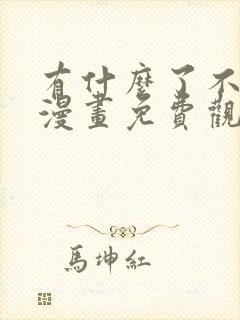 有什麼了不
漫畫免費觀
馬坤紅